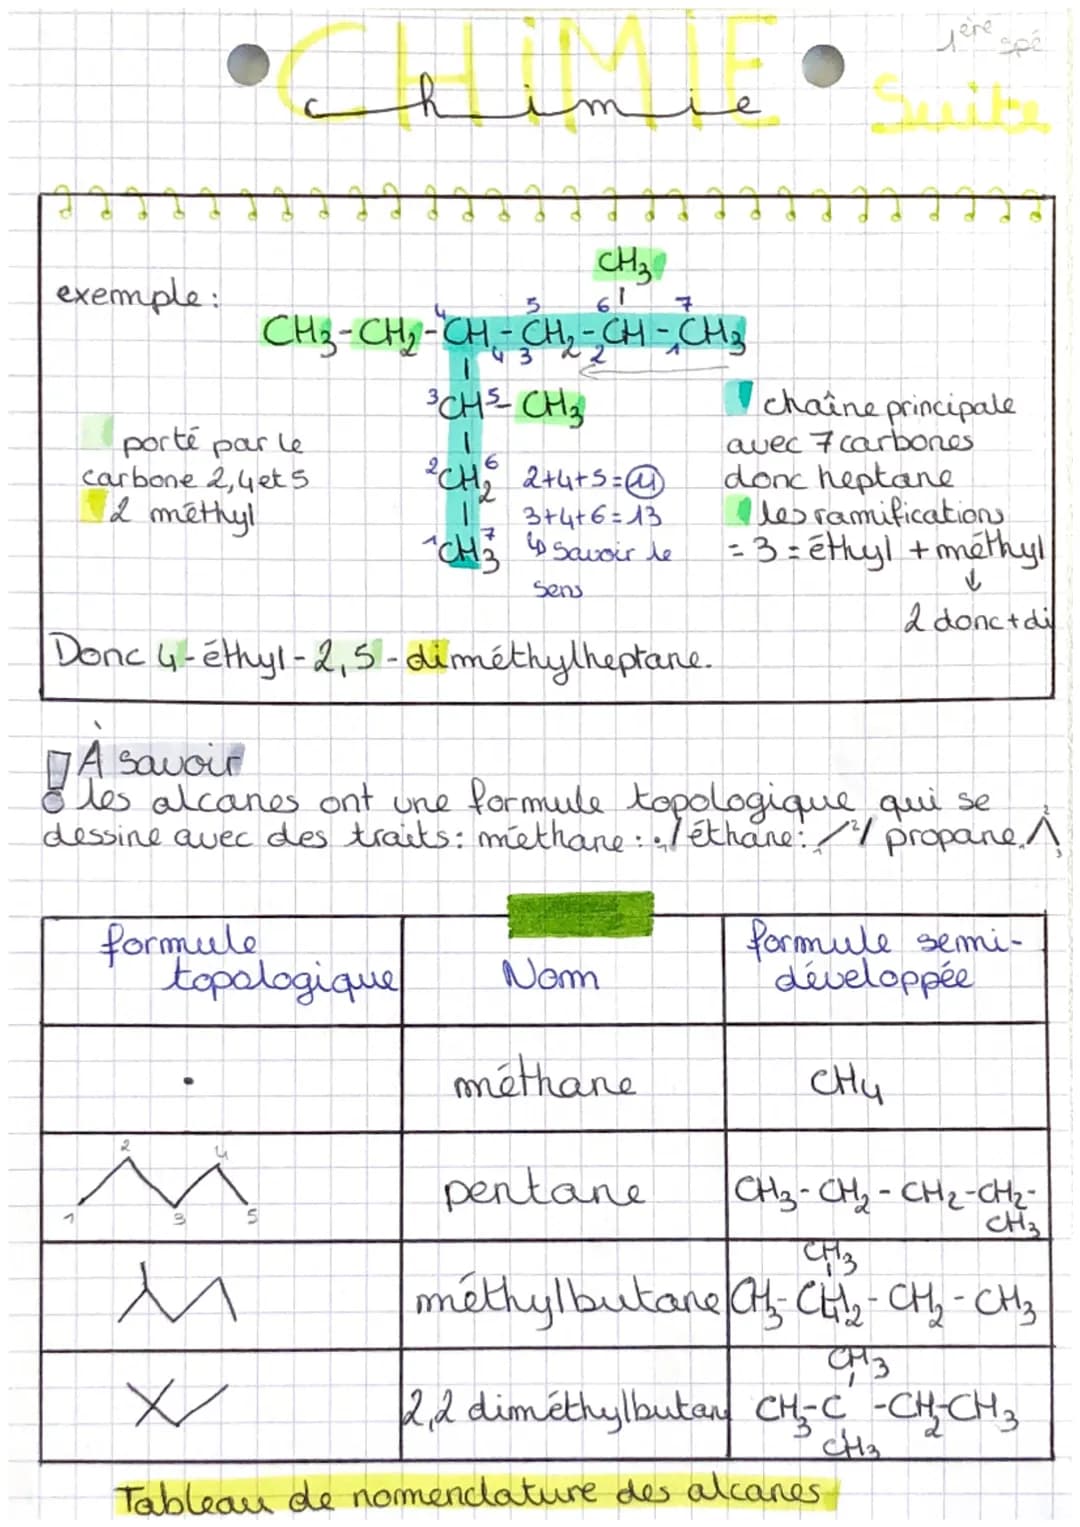 CHIMIE
chimie
1ère spé
Suite
exemple :
CH3
5 6 7
4
CH3-CH2-CH-CH2-CH-CH3
4 3 2 1
3CH5-CH3
2CH2 6
1CH3 7
porté par le
carbone 2,4et5
2 méthyl
2+4+5=11
3+4+6=13
↳ Savoir le
sens
chaîne principale
avec 7 carbones
donc heptane
les ramifications
= 3 = éthyl + méthyl
↓
2 donc + di
Donc 4-éthyl-2,5-diméthylheptane.
À savoir
les alcanes ont une formule topologique qui se
dessine avec des traits: méthane: . / éthane: 1 2 / propane 1 2 3
formule topologique
Nom
formule semi-développée
méthane
CH4
2 4
1 3 5
pentane
CH3-CH2-CH2-CH2-
CH3
CH3
méthylbutane
CH3-CH2-CH2-CH3
CH3
2,2 diméthylbutan
CH3-C-CH2-CH3
CH3
Tableau de nomenclature des alcanes